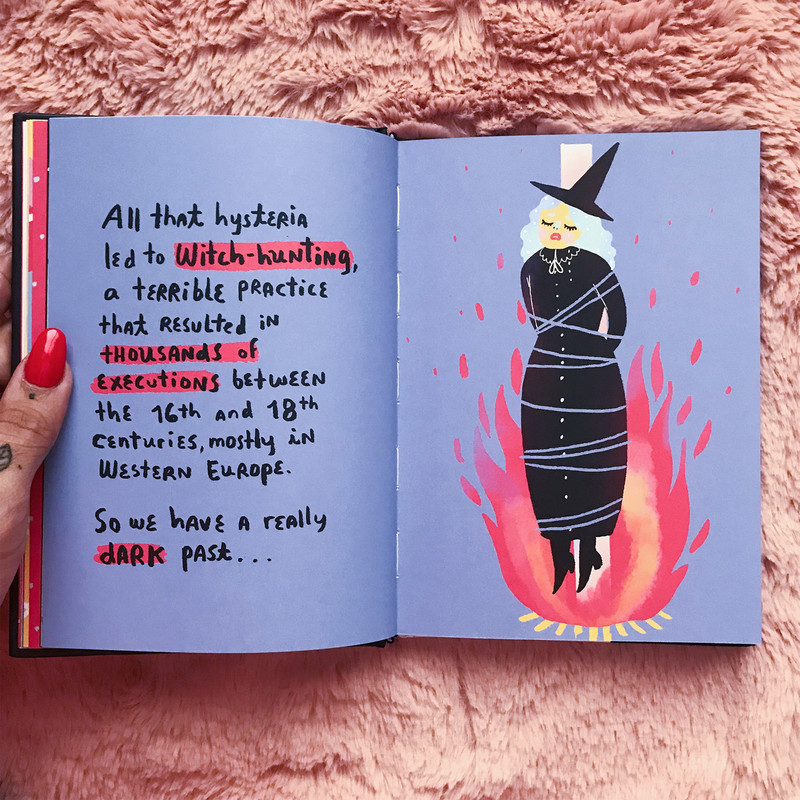 All that hysteria
led to Witch-hunting,
a terrible practice
that resulted in
thousands of
executions between
the 16th and 18th
centuries, mostly in
Western Europe.
So we have a really
dark past...